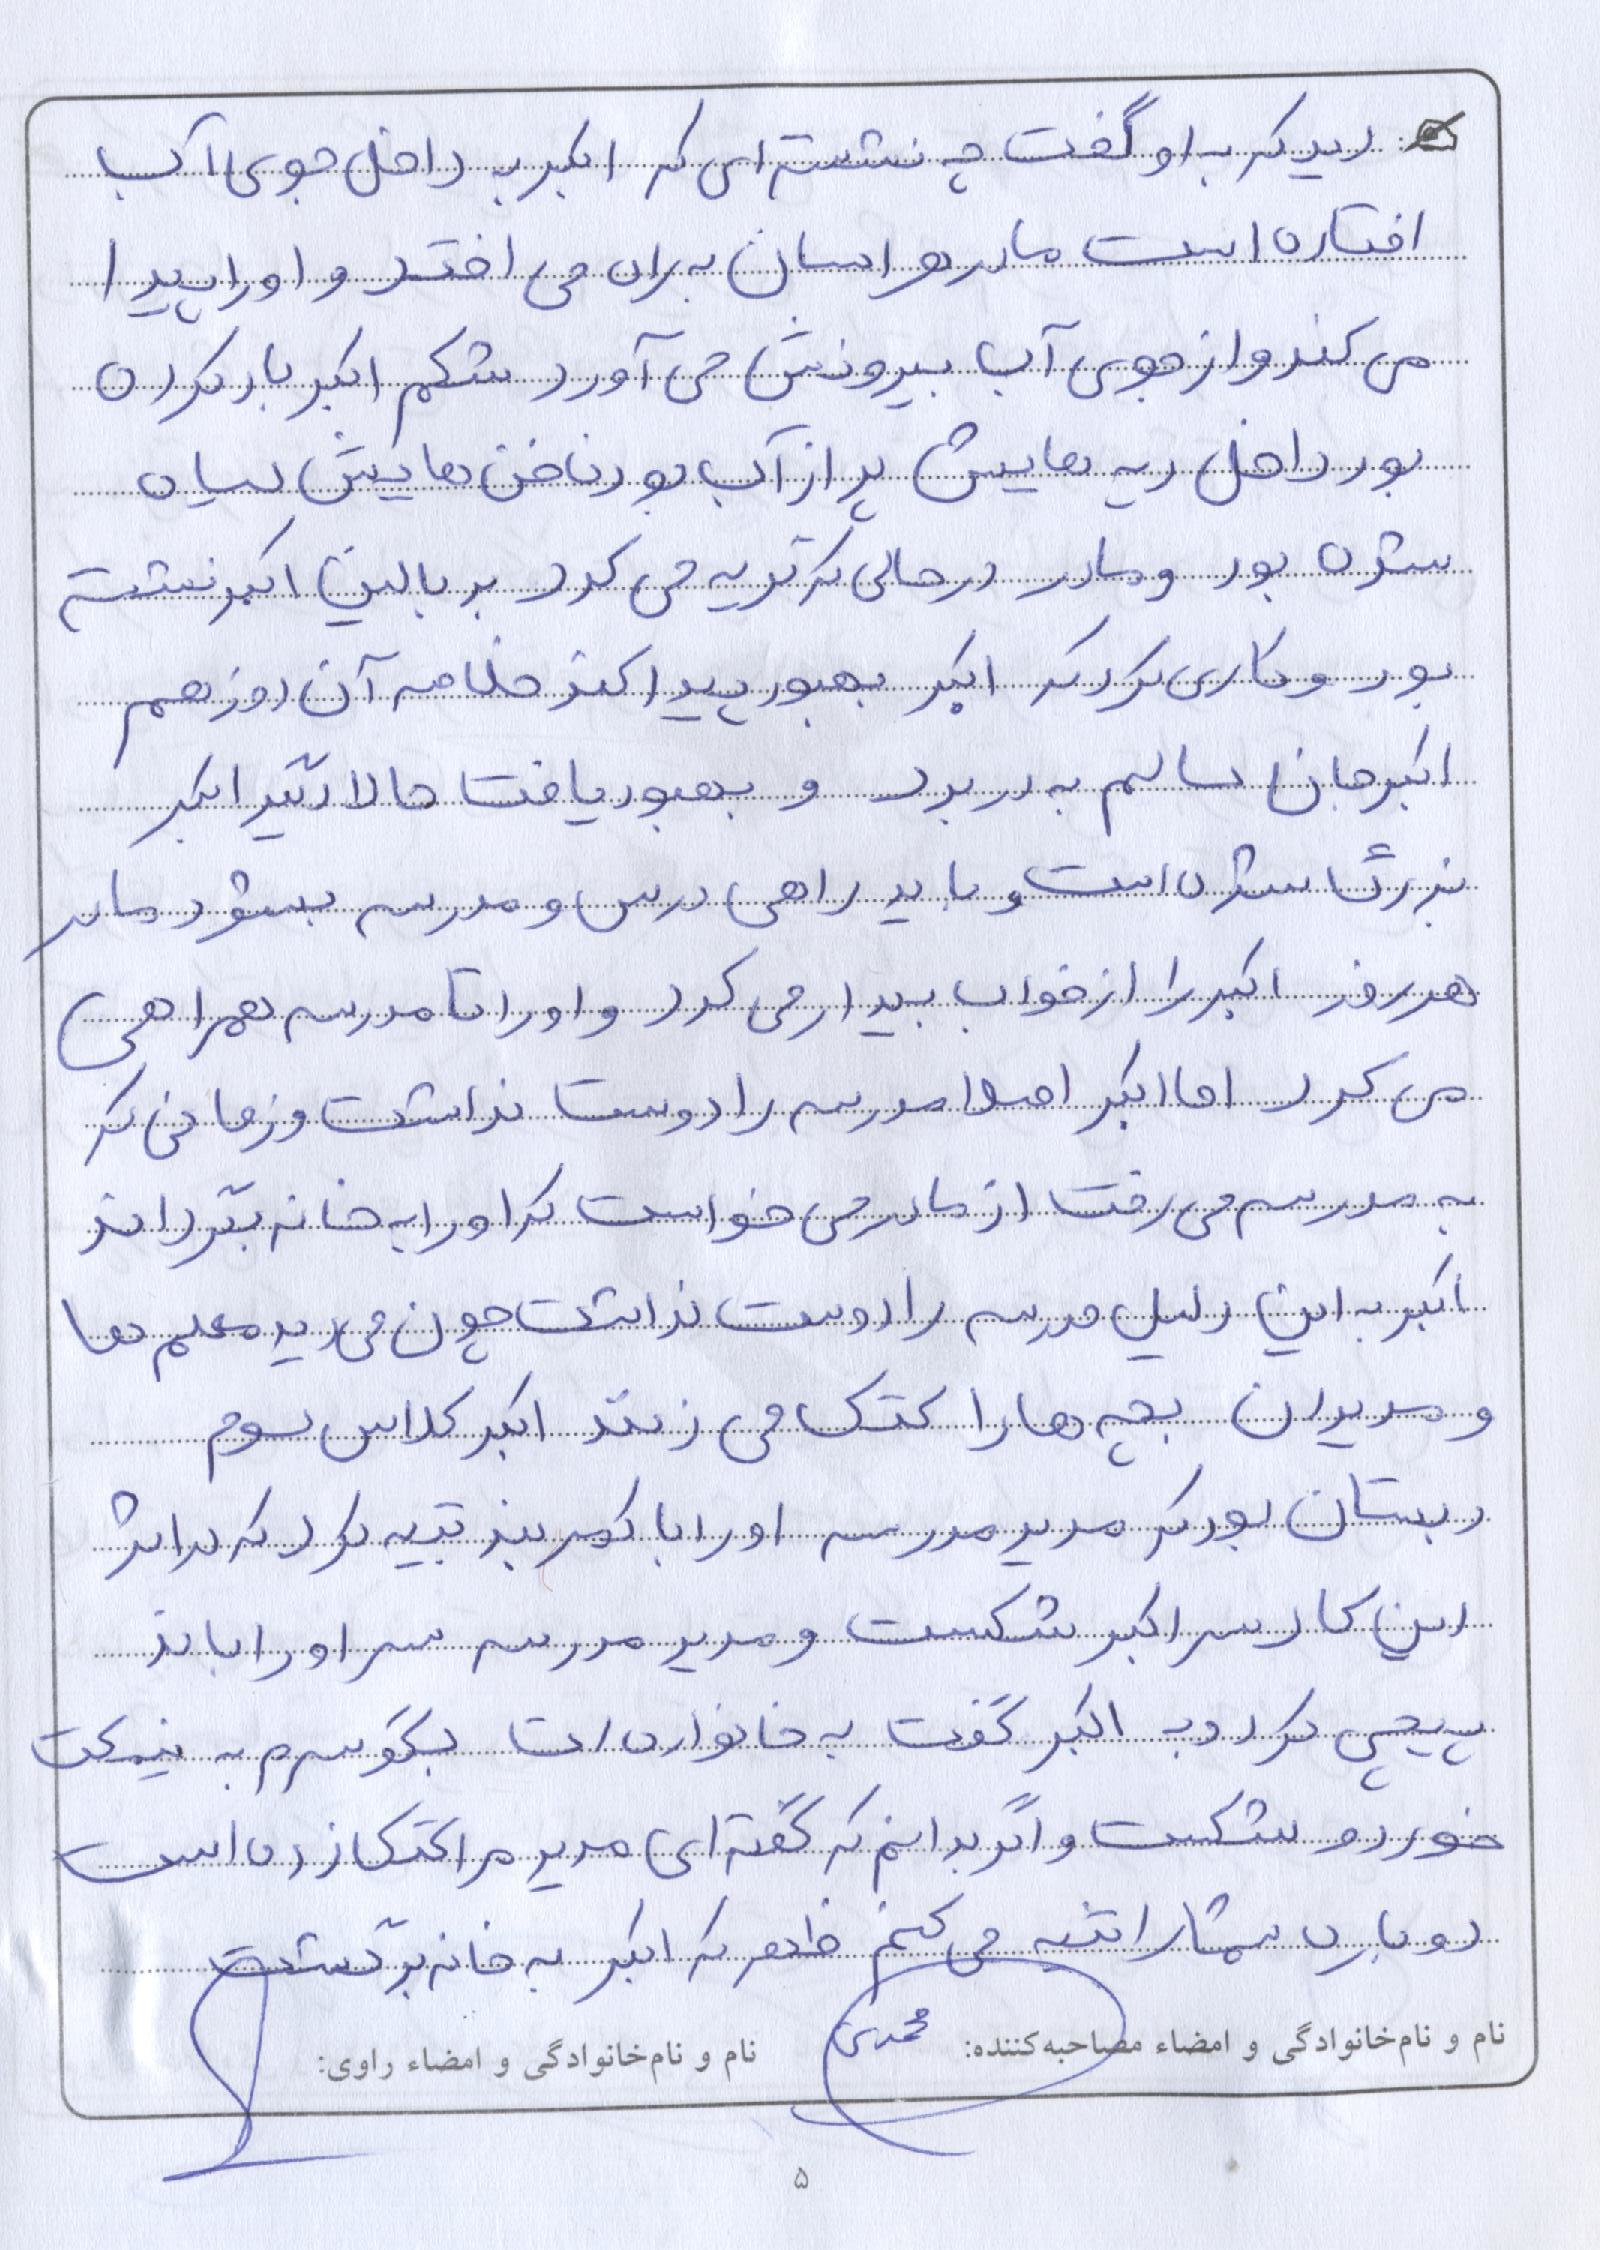 دید که به او گفت چه نشسته ای که اکبر به داخل جوی آب
افتاده است مادر هراسان به راه می افتد و او را پیدا
می کند و از جوی آب بیرونش می آورد شکم اکبر باد کرده
بود داخل ریه هایش پر از آب بود ناخن هایش سیاه
شده بود و مادر در حالی که گریه می کرد بر بالین اکبر نشسته
بود و کاری کرد که اکبر بهبود پیدا کند خلاصه آن روز هم
اکبر جان سالم به در برد و بهبود یافت حالا دیگر اکبر
بزرگ شده است و باید راهی درس و مدرسه بشود مادر
هر روز اکبر را از خواب بیدار می کرد و او را تا مدرسه همراهی
می کرد اما اکبر اصلا مدرسه را دوست نداشت و زمانی که
به مدرسه می رفت از مادر می خواست که او را به خانه بگرداند
اکبر به این دلیل مدرسه را دوست نداشت چون می دید معلم ها
و مدیران بچه ها را کتک می زنند اکبر کلاس سوم
دبستان بود که مدیر مدرسه او را با کمربند تنبیه کرد که بر اثر
این کار سر اکبر شکست و مدیر مدرسه سر او را باند
پیچی کرد و به اکبر گفت به خانواده ات بگو سرم به نیمکت
خورد و شکست و اگر بدانم که گفته ای مدیر مرا کتک زده است
دوباره شما را تنبیه می کنم ظهر که اکبر به خانه برگشت
نام و نام خانوادگی و امضاء مصاحبه کننده: محمدی
نام و نام خانوادگی و امضاء راوی:
۵